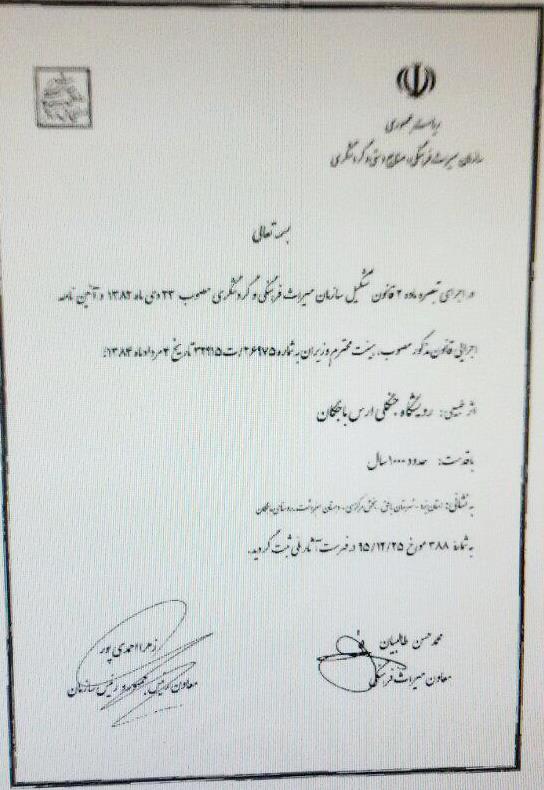 ریاست جمهوری
سازمان میراث فرهنگی، صنایع دستی و گردشگری
بسمه تعالی
در اجرای تبصره ماده ۲ قانون تشکیل سازمان میراث فرهنگی و گردشگری مصوب ۲۳ دی ماه ۱۳۸۲ و آئین نامه
اجرائی قانون مذکور مصوب هیئت محترم وزیران به شماره ۲۶۹۷۵/ت۳۲۹۱۵ تاریخ ۴ مرداد ماه ۱۳۸۴:
اثر طبیعی: رویشگاه جنگلی ارس باجگان
باقدمت: حدود ۱۰۰۰ سال
به نشانی: استان یزد - شهرستان بافق - بخش مرکزی - دهستان - روستای باجگان
به شماره ۳۸۸ مورخ ۹۵/۱۲/۲۵ در فهرست آثار ملی ثبت گردید.
محمدحسن طالبیان
معاون میراث فرهنگی
زهرا احمدی پور
معاون رئیس جمهور و رئیس سازمان